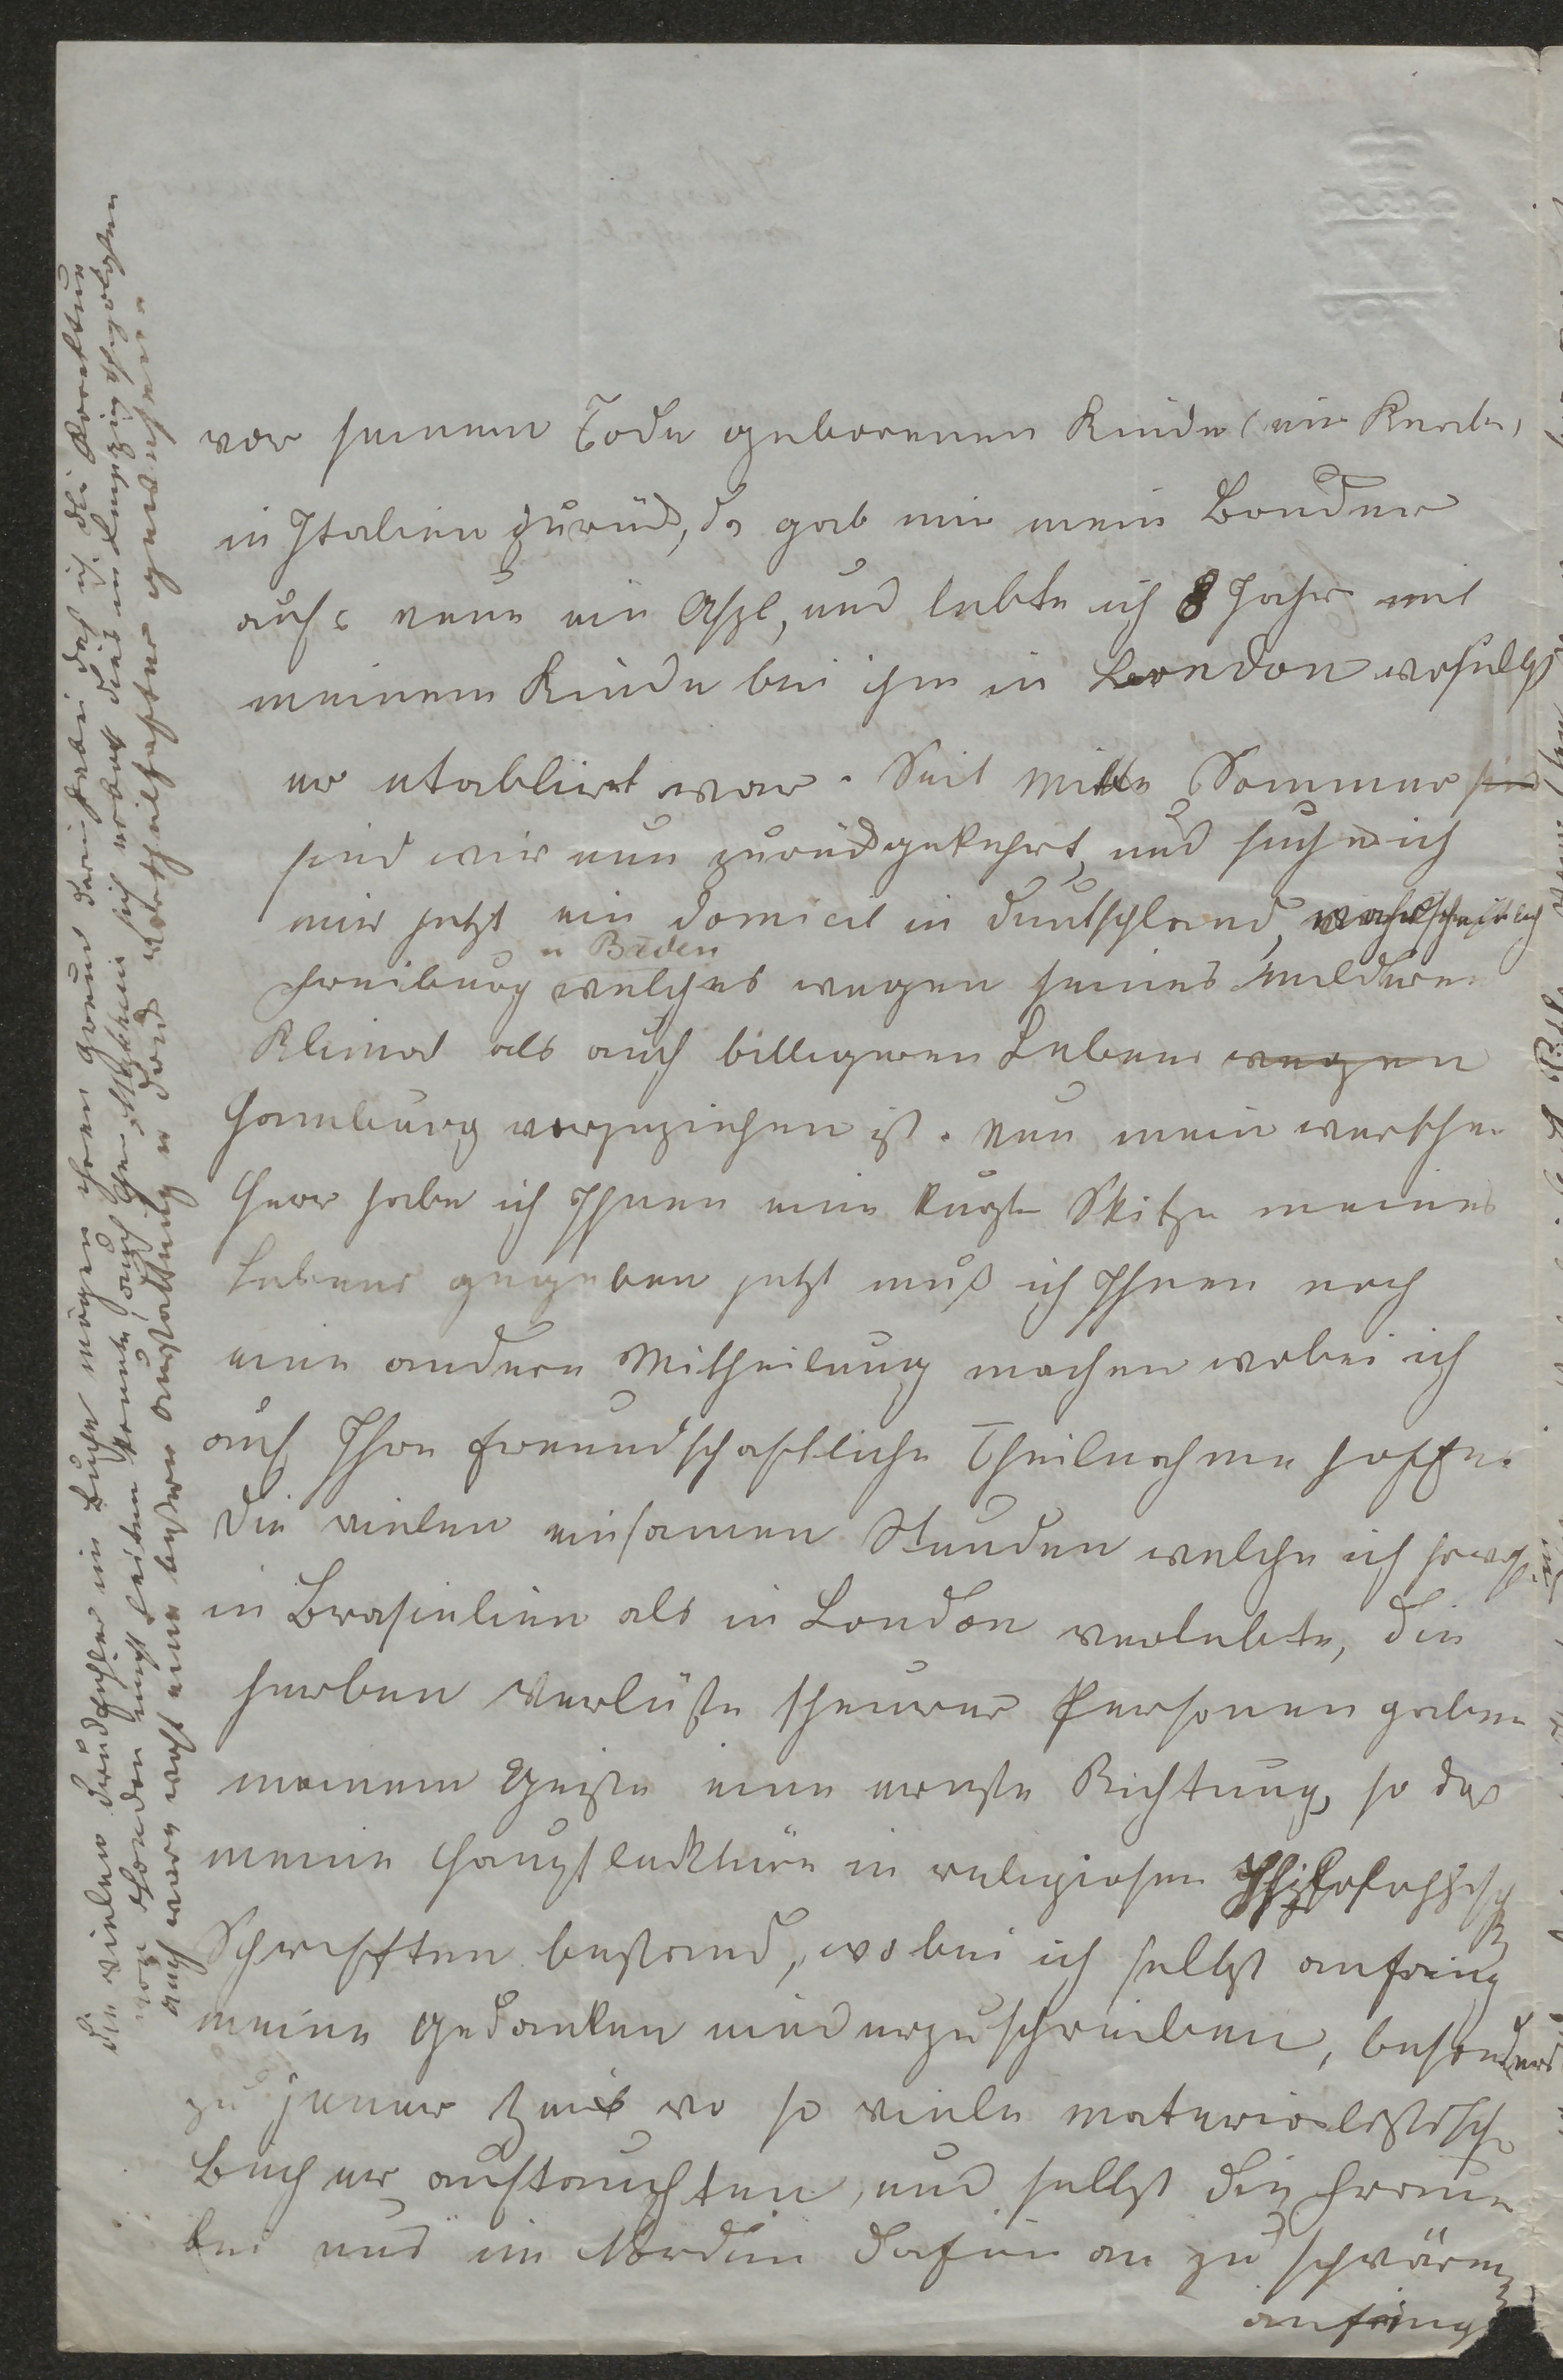 vor seinem Tode geborenen Kinde (ein Knabe)
in Italien zurück, da gab mir mein Bruder
aufs neue ein Asyl, und lebte ich 8 Jahr mit
meinem Kinde bei ihm in London woselbst
er etablirt war. Seit Mitte Sommer sind
sind wir nun zurückgekehrt, und suche ich
mir jetzt ein Domicil in Deutschland, wahrscheinlich
Freiburg n Baden welches wegen seines milderen
Klimas als auch billigeren Lebens wegen
Hamburg vorzuziehen ist. Nun mein werther
Herr habe ich Ihnen eine kurze Skitze meines
Lebens gegeben jetzt muß ich Ihnen noch
eine andere Mittheilung machen wobei ich
auf Ihre freundschaftliche Theilnahme hoffe.
Die vielen einsamen Stunden welche ich sowohl
in Brasielien als in London verlebte, die
herben Verlüste theurer Personen gaben
meinem Geiste eine ernste Richtung, so das
meine Hauptlecktüre in religiosen Philosophisch
Schrifften bestand, wobei ich selbst anfing
meine Gedanken niederzuschreiben, besonders
zu jener Zeit wo so viele materialistische
Bücher auftauchten, und selbst die Frauen
bei uns im Norden dafür an zu schwärmen
anfingen
die vielen Druckfehler im Buche mögen ihren Grund darin haben das ich die Korrektur
von London nicht leiten konnte, auch Herr Mützer sich erbat dies in Leipzig zu besorgen
auch wäre wohl eine bessere Ausstattung u Band vortheilhafter gewesen.